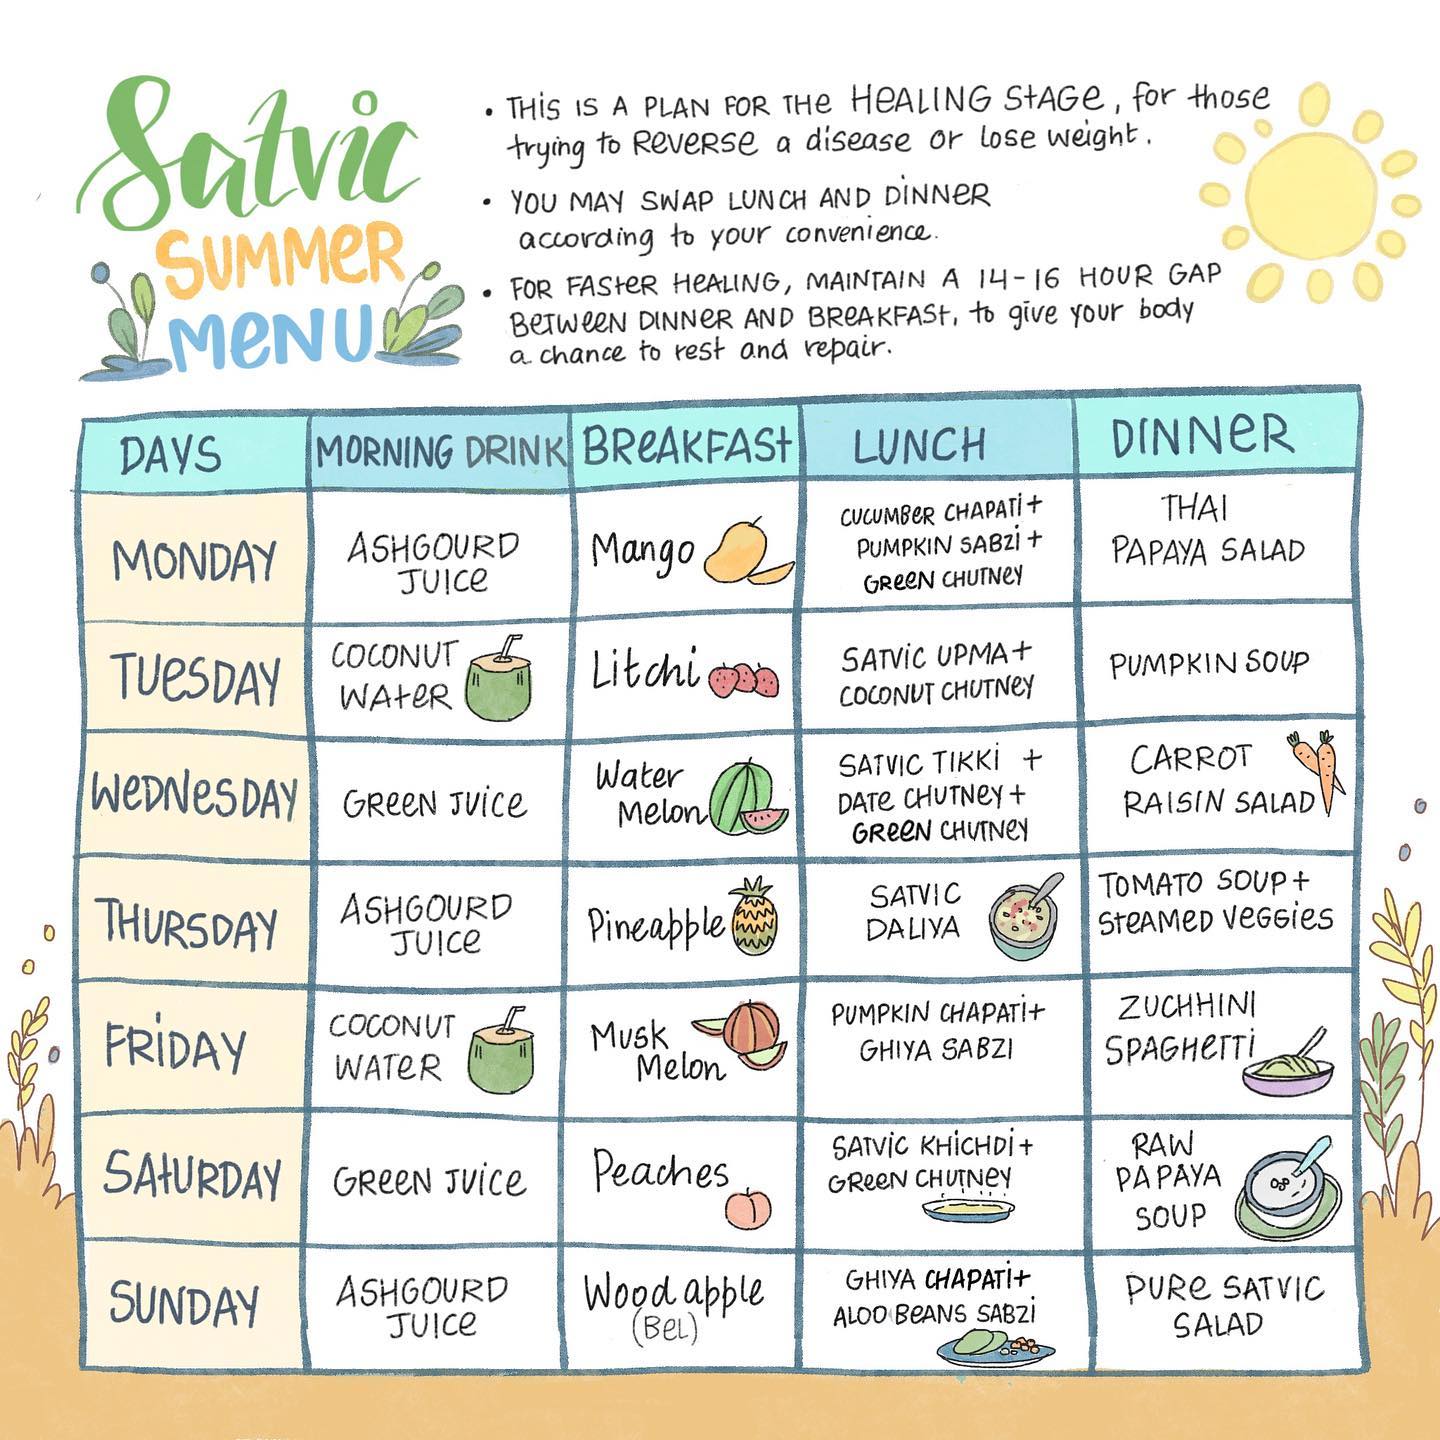 Satvic
SUMMER
MENU
• THIS IS A PLAN FOR THE HEALING STAGE, for those
trying to REVERSE a disease or lose weight.
• YOU MAY SWAP LUNCH AND DINNER
according to your convenience.
• FOR FASTER HEALING, MAINTAIN A 14-16 HOUR GAP
BETWEEN DINNER AND BREAKFAST, to give your body
a chance to rest and repair.
DAYS MORNING DRINK BREAKFAST LUNCH DINNER
MONDAY
ASHGOURD
JUICE
Mango
CUCUMBER CHAPATI+
PUMPKIN SABZI +
GREEN CHUTNEY
THAI
PAPAYA SALAD
TUESDAY
COCONUT
WATER
Litchi
SATVIC UPMA+
COCONUT CHUTNEY
PUMPKIN SOUP
WEDNESDAY
GREEN JUICE
Water
Melon
SATVIC TIKKI +
DATE CHUTNEY+
GREEN CHUTNEY
CARROT
RAISIN SALAD
THURSDAY
ASHGOURD
JUICE
Pineapple
SATVIC
DALIYA
TOMATO SOUP+
STEAMED VEGGIES
FRIDAY
COCONUT
WATER
Musk
Melon
PUMPKIN CHAPATI+
GHIYA SABZI
ZUCHHINI
SPAGHETTI
SATURDAY
GREEN JUICE
Peaches
SATVIC KHICHDI+
GREEN CHUTNEY
RAW
PAPAYA
SOUP
SUNDAY
ASHGOURD
JUICE
Wood apple
(BEL)
GHIYA CHAPATI+
ALOO BEANS SABZI
PURE SATVIC
SALAD